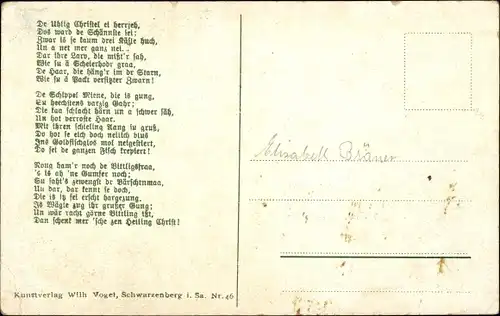 De Uhlig Christel ei herrjeh,
Dos ward de Schännste sei:
Zwar is se kaum drei Käste huch,
Un a net mer ganz nei.
Dar ihre Larv, die mißt'r sah,
Wie su ä Scheierhodr graa,
De Haar, die häng'r im dr Starn,
Wie su ä Packt versitzter Zwarn!
De Schippel Miene, die is gung,
Su heechstens varzig Gahr;
Die kaa schlacht härn un a schwer säh,
Un hot verroste Haar.
Mit ihren schieling Aang su gruß,
Do hot se eich doch neilich blus
Ins Goldfischglos nei
Do sei de ganzen Fisch krepiert!
Noug ham'r noch de Büttigsfraa,
's is ah 'ne Gumfer noch;
Su saht's zewengst dr Bärschtnmaa,
Un dar, dar kennt se doch,
Die is itz sei erscht hargezung,
Is Wägle zug ihr grußer Gung;
Un wär racht gärne Büttling ißt,
Dan schenk mer 'sche zen Heiling Christ!
Elisabeth Bräuer
Kunstverlag Wilh Vogel, Schwarzenberg i. Sa. Nr. 46